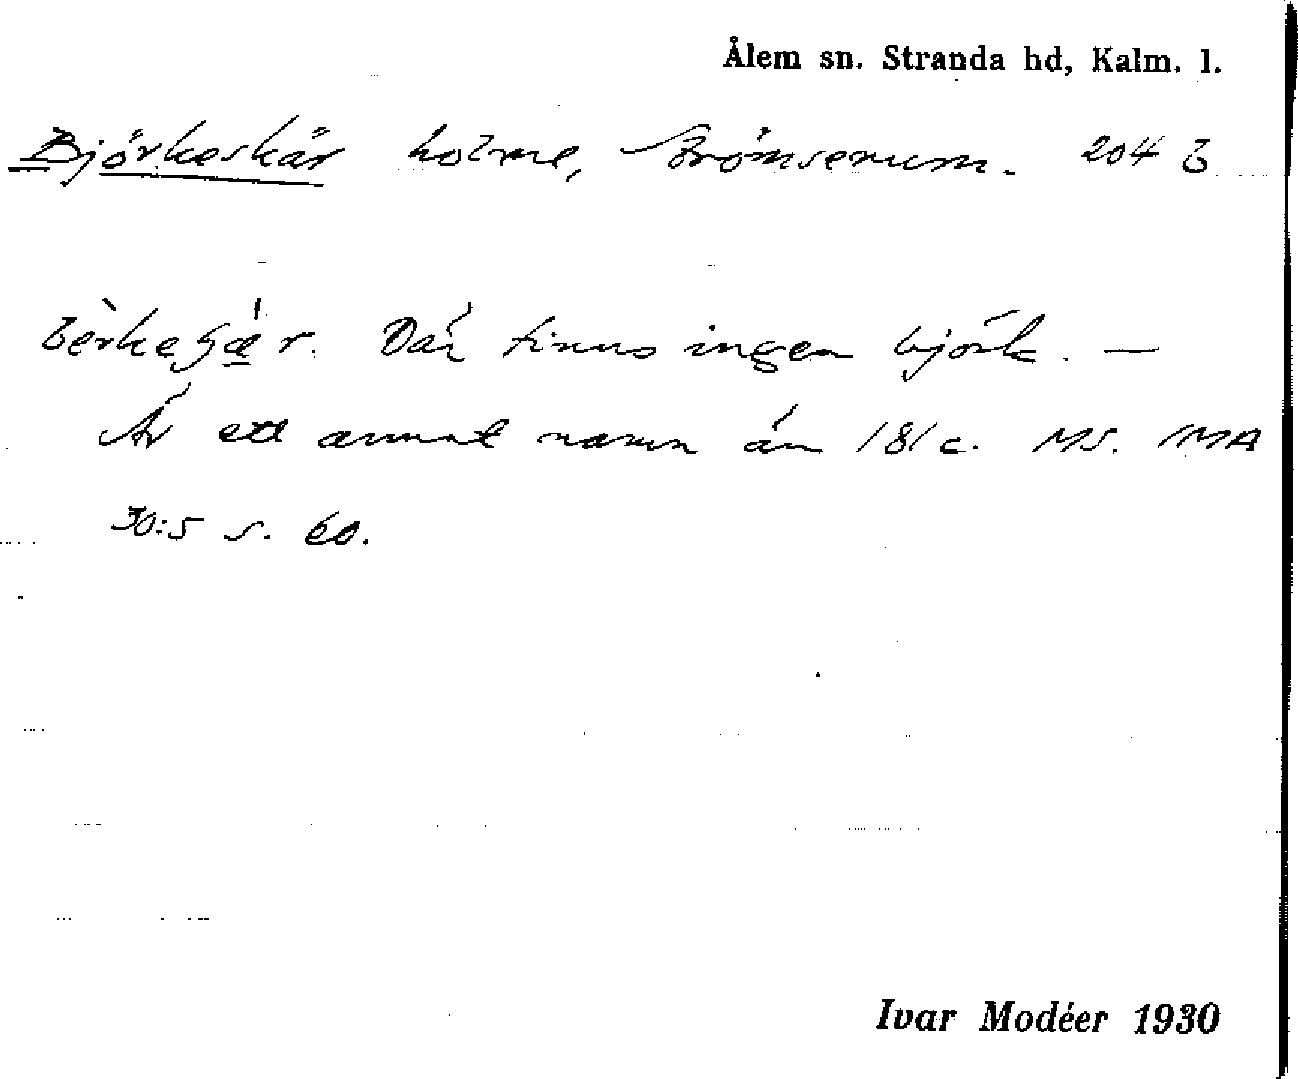 Ålem sn. Stranda hd, Kalm. l.
Björkeskär holme, Strömserum. 204 b
Där finns ingen björk. —
Är ett annat namn än 181 c. MS. IMA
30:5 s. 60.
Ivar Modéer 1930